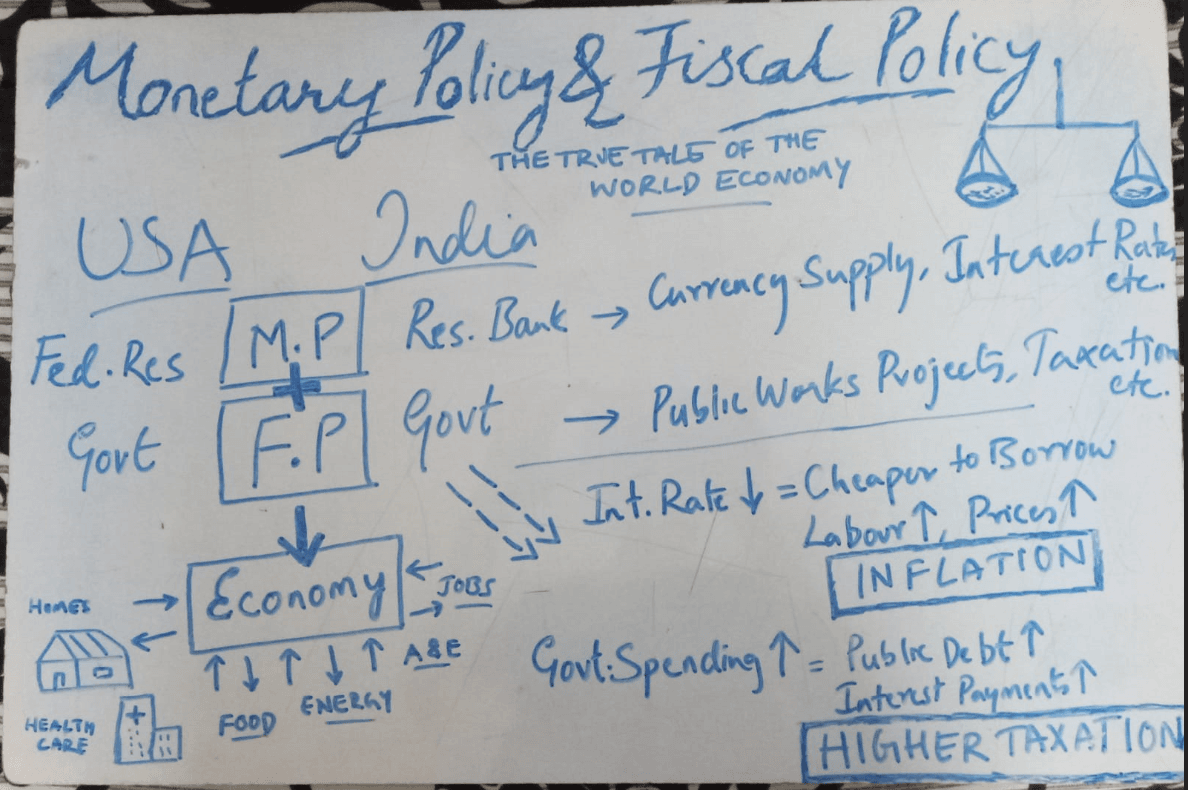 Monetary Policy & Fiscal Policy
THE TRUE TALE OF THE
WORLD ECONOMY
USA
India
Fed. Res
M.P
Res. Bank → Currency Supply, Interest Rates
etc.
+
Govt
F.P
Govt → Public Works Projects, Taxation
etc.
Int. Rate ↓ = Cheaper to Borrow
Labour ↑, Prices ↑
INFLATION
Economy
JOBS
HOMES
A&E
ENERGY
FOOD
HEALTH
CARE
Govt. Spending ↑ = Public Debt ↑
Interest Payments ↑
HIGHER TAXATION